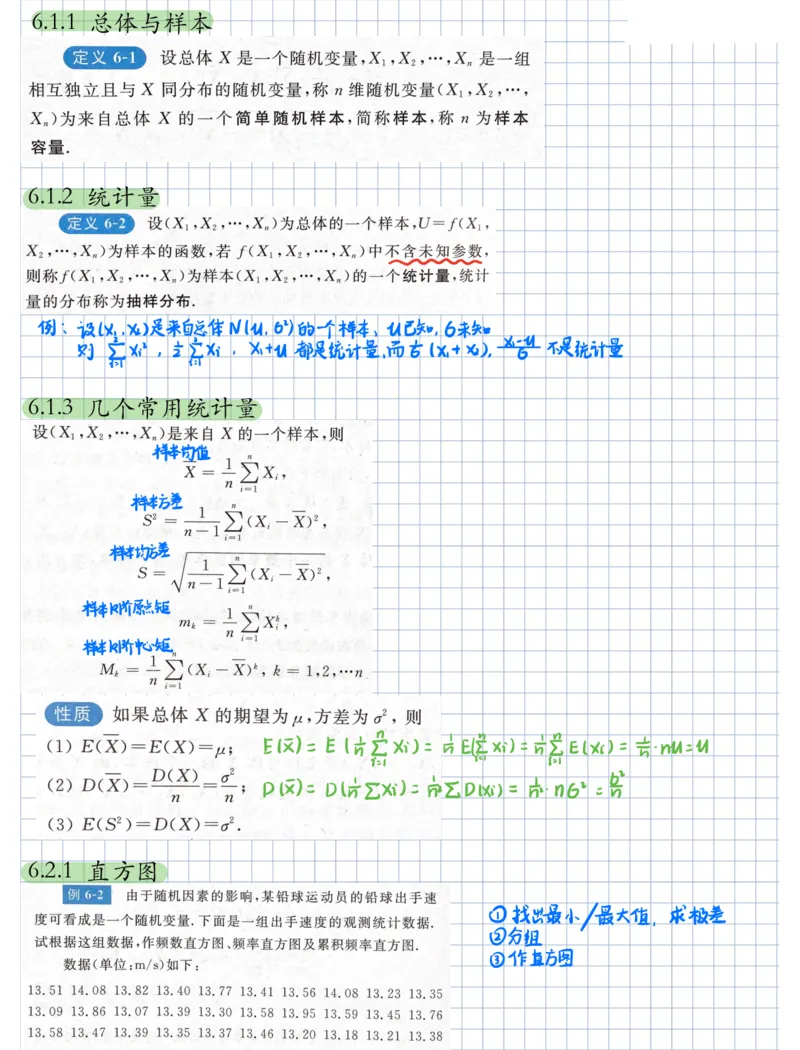 6.1.1 总体与样本
定义 6-1 设总体 X 是一个随机变量,X₁,X₂,…,Xₙ 是一组
相互独立且与 X 同分布的随机变量,称 n 维随机变量(X₁,X₂,…,
Xₙ)为来自总体 X 的一个简单随机样本,简称样本,称 n 为样本
容量.
6.1.2 统计量
定义 6-2 设(X₁,X₂,…,Xₙ)为总体的一个样本,U=f(X₁,
X₂,…,Xₙ)为样本的函数,若 f(X₁,X₂,…,Xₙ)中不含未知参数,
则称f(X₁,X₂,…,Xₙ)为样本(X₁,X₂,…,Xₙ)的一个统计量,统计
量的分布称为抽样分布.
例:设(X₁,X₂)是来自总体N(μ,σ²)的一个样本、μ已知,σ未知
则 ∑_{i=1}^{2} Xi², 1/2 ∑_{i=1}^{2} Xi, X₁+μ 都是统计量,而 1/σ (X₁+X₂), (X₁-μ)/σ 不是统计量
6.1.3 几个常用统计量
设(X₁,X₂,…,Xₙ)是来自 X 的一个样本,则
样本均值
X̄ = 1/n ∑_{i=1}^{n} Xᵢ,
样本方差
S² = 1/(n-1) ∑_{i=1}^{n} (Xᵢ-X̄)²,
样本均方差
S = √(1/(n-1) ∑_{i=1}^{n} (Xᵢ-X̄)²),
样本k阶原点矩
mₖ = 1/n ∑_{i=1}^{n} Xᵢᵏ,
样本k阶中心矩
Mₖ = 1/n ∑_{i=1}^{n} (Xᵢ-X̄)ᵏ, k = 1,2,…n
性质 如果总体 X 的期望为 μ,方差为 σ², 则
(1) E(X̄)=E(X)=μ; E(X̄)= E(1/n ∑_{i=1}^{n} Xi)= 1/n E(∑_{i=1}^{n} Xi)= 1/n ∑_{i=1}^{n} E(Xi)= 1/n·nμ=μ
(2) D(X̄)=D(X)/n=σ²/n; D(X̄)= D(1/n ∑Xi)= 1/n² ∑D(Xi)= 1/n²·nσ² = σ²/n
(3) E(S²)=D(X)=σ².
6.2.1 直方图
例 6-2 由于随机因素的影响,某铅球运动员的铅球出手速
度可看成是一个随机变量.下面是一组出手速度的观测统计数据.
试根据这组数据,作频数直方图、频率直方图及累积频率直方图.
数据(单位:m/s)如下:
13.51 14.08 13.82 13.40 13.77 13.41 13.56 14.08 13.23 13.35
13.09 13.86 13.07 13.39 13.30 13.58 13.95 13.59 13.45 13.76
13.58 13.47 13.39 13.35 13.37 13.46 13.20 13.18 13.21 13.38
①找出最小/最大值,求极差
②分组
③作直方图